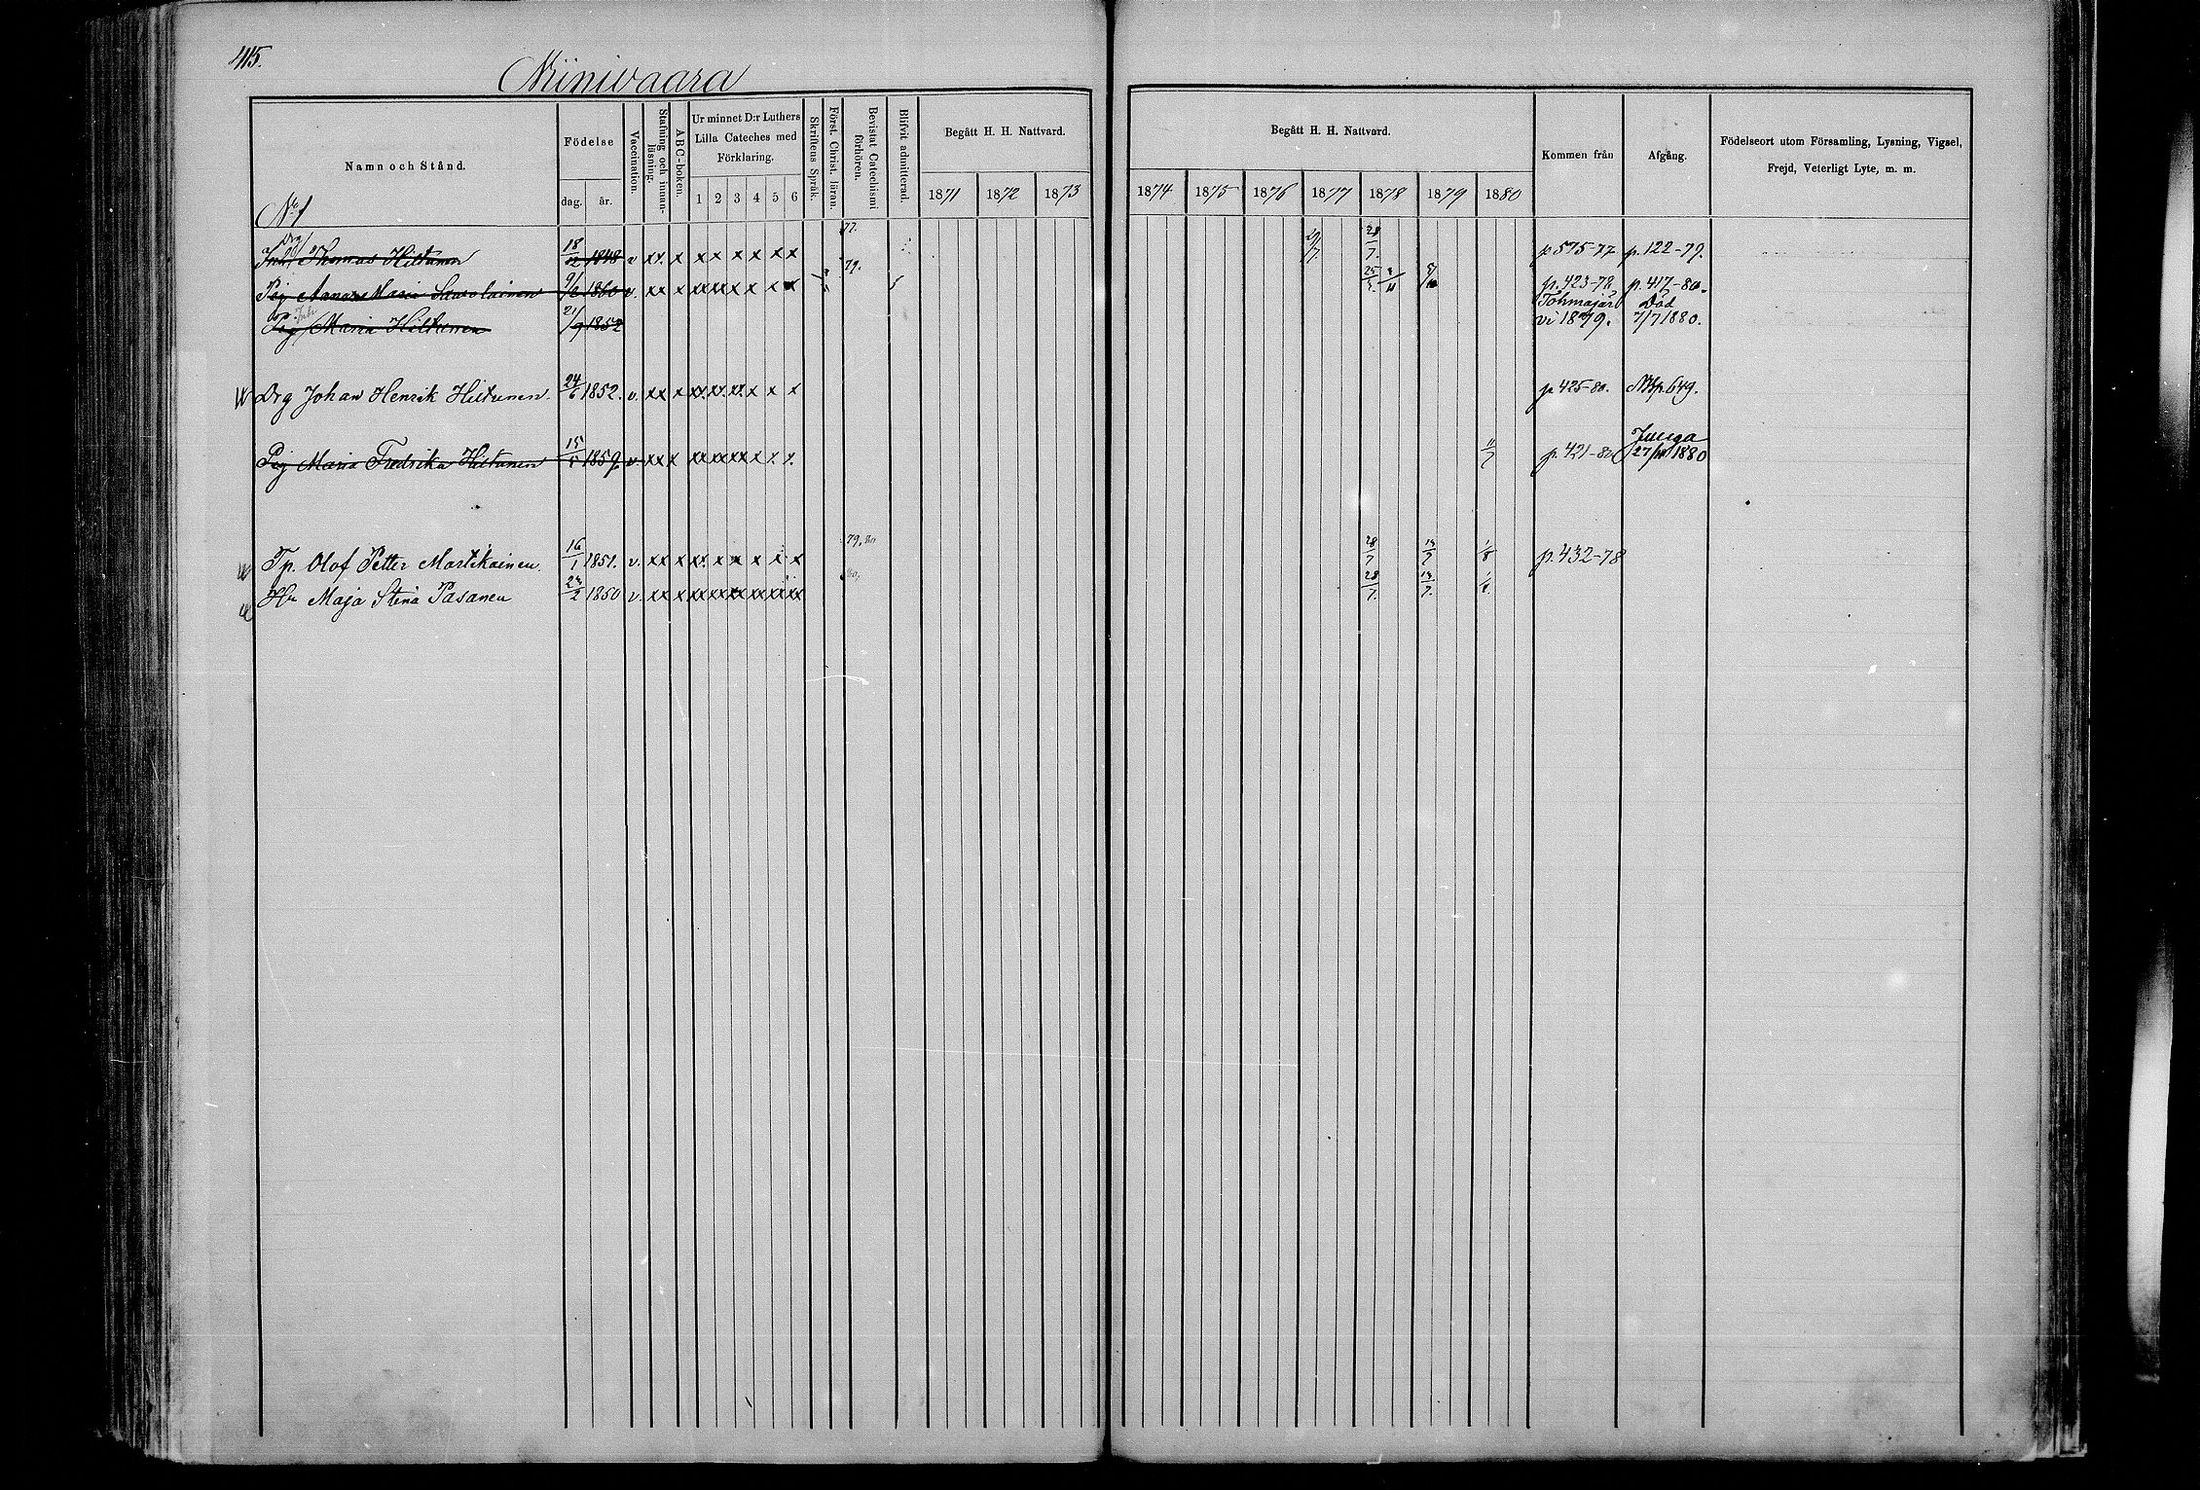 415.
Niinivaara
Namn och Stånd.
Födelse
dag. år.
Vaccination.
Stafning och innanläsning.
ABC-boken.
Ur minnet D:r Luthers
Lilla Cateches med
Förklaring.
1 2 3 4 5 6
Skriftens Språk.
Först. Christ. läran.
Bevistat Catechismi förhören.
Blifvit admitterad.
Begått H. H. Nattvard.
1871 1872 1873
Begått H. H. Nattvard.
1874 1875 1876 1877 1878 1879 1880
Kommen från
Afgång.
Födelseort utom Församling, Lysning, Vigsel,
Frejd, Veterligt Lyte, m. m.
No 1
Drg
Inh Thomas Hiltunen 18/12 1848 v xx x xx x x x x x 77. 29/7. 29/7. p 575-77 p. 122-79.
Pig Anna Maria Savolainen 9/6 1860 v. xx x 79. p. 423-78 p. 417-80.
Pig Maria Hiltunen 21/9 1852 Tohmajärvi 1879. Död 7/7 1880.
Drg Johan Henrik Hiltunen. 24/6 1852. v. xx x xx. xx. x. x x x p 425-80. NB p. 649.
Pig Maria Fredrika Hiltunen 15/5 1859 v xx x 11/7 p. 421-80 Juuga 27/10 1880
Tp. Olof Petter Martikainen 16/1 1851. v. xx x xx. x x x x x 79, 80 28/7 13/7 1/8 p. 432-78
Hu Maja Stina Pasanen 23/2 1850 v. xx x xx xx x xx xx xx 80, 28/7. 13/7. 1/8.